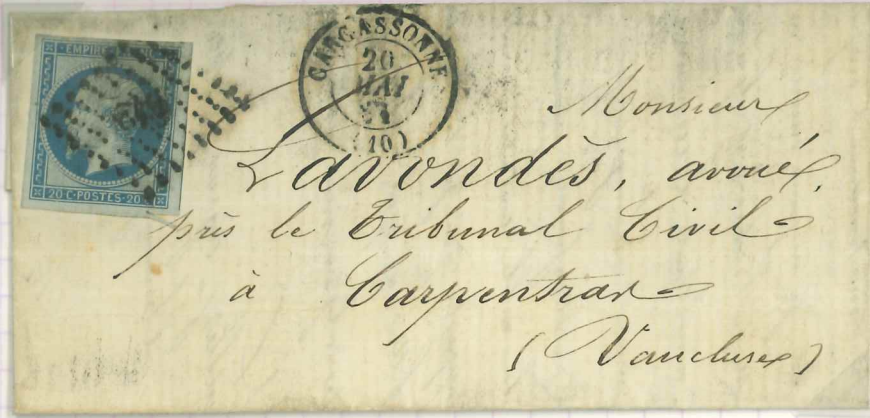 EMPIRE FRANC
20 C·POSTES·20
CARCASSONNE
20
MAI
(10)
Monsieur
Lavondès, avoué,
près le Tribunal Civil
à Carpentras
(Vaucluse)